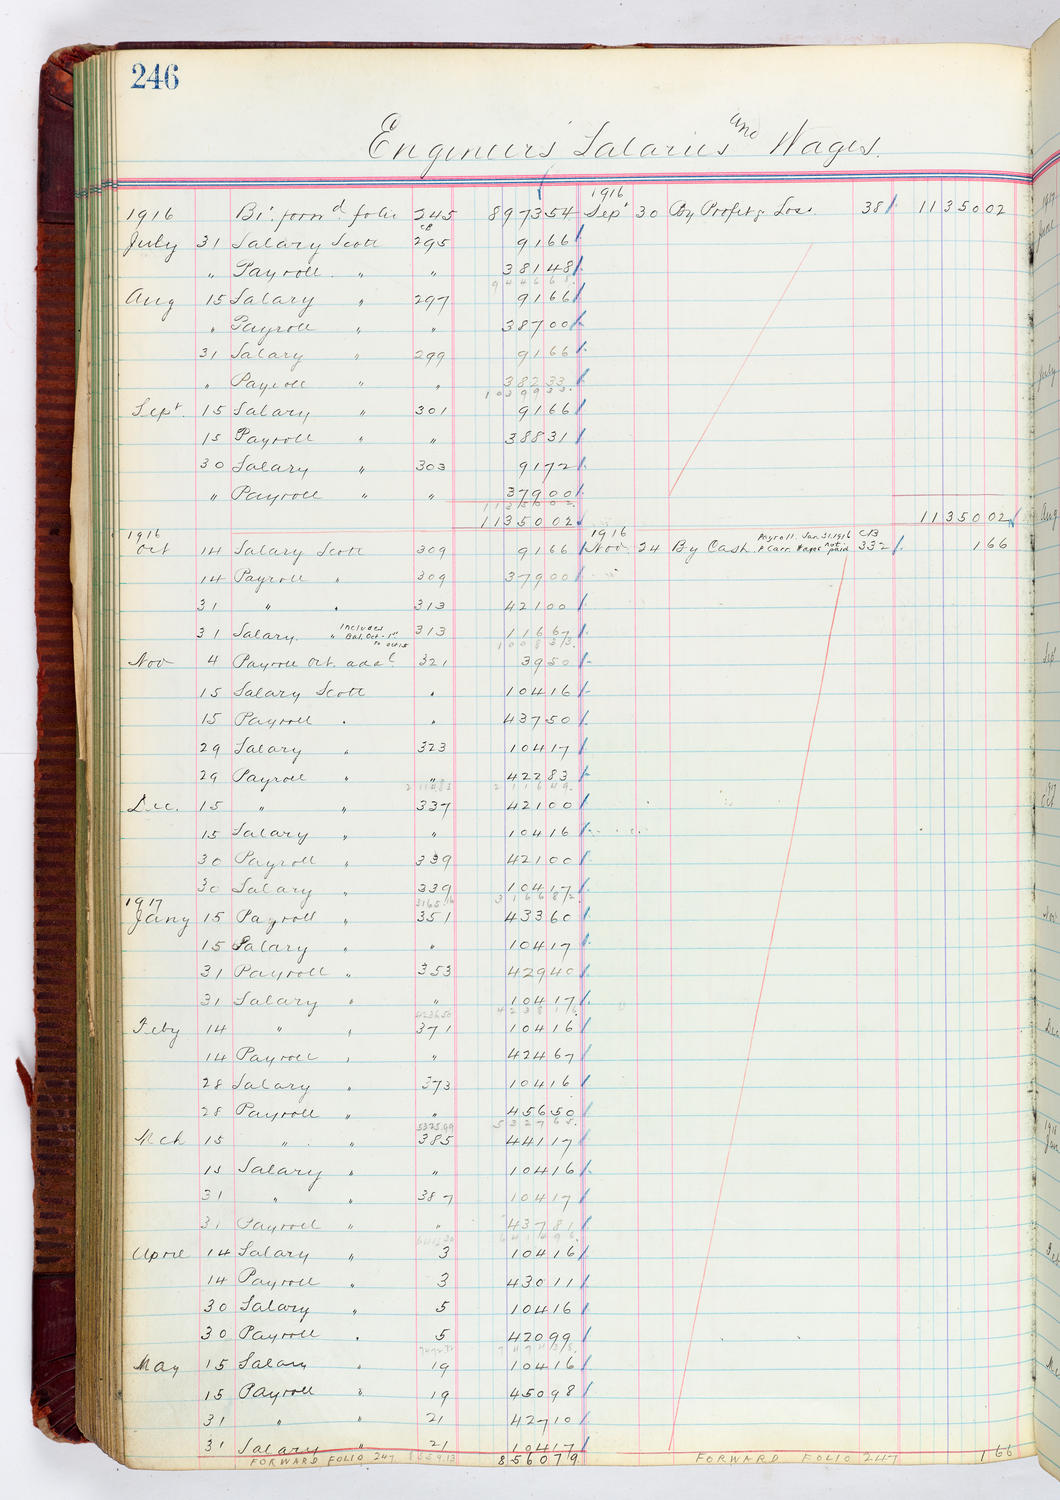 246
Engineers' Salaries and Wages.
1916 Bt. forr'd folio 245 8973 54 1916 Sept 30 By Profit & Loss. 38 11350 02
July 31 Salary Scott CB 295 91 66
" Payroll " " 381 48
9446 68
Aug 15 Salary " 297 91 66
" Payroll " " 387 00
31 Salary " 299 91 66
" Payroll " " 382 33
10399 33
Sept. 15 Salary " 301 91 66
15 Payroll " " 388 31
30 Salary " 303 91 72
" Payroll " " 379 00
11350 02
11350 02 11350 02
1916 1916 Payroll Jan 31. 1916 C/B
Oct 14 Salary Scott 309 91 66 Nov 24 By Cash not paid 332 1 66
14 Payroll " 309 379 00
31 " " 313 421 00
31 Salary " Includes Bal. Oct-1st to Oct 15 313 116 67
1008 33
Nov 4 Payroll Oct. adal 321 39 50
15 Salary Scott " 104 16
15 Payroll " " 437 50
29 Salary " 323 104 17
29 Payroll " " 422 83
2114.83 2116 49
Dec. 15 " " 337 421 00
15 Salary " " 104 16
30 Payroll " 339 421 00
30 Salary " 339 104 17
1917 3165.16 3166 82
Jany 15 Payroll " 351 433 60
15 Salary " " 104 17
31 Payroll " 353 429 40
31 Salary " " 104 17
4236.50 4238 16
Feby 14 " " 371 104 16
14 Payroll " " 424 67
28 Salary " 373 104 16
28 Payroll " " 456 50
5325.99 5327 65
Mch 15 " " 385 441 17
15 Salary " " 104 16
31 " " 387 104 17
31 Payroll " " 437 81
6413.30 6414 96
April 14 Salary " 3 104 16
14 Payroll " 3 430 11
30 Salary " 5 104 16
30 Payroll " 5 420 99
7472.72 7474 38
May 15 Salary " 19 104 16
15 Payroll " 19 450 98
31 " " 21 427 10
31 Salary " 21 104 17
FORWARD FOLIO 247 8559.13 8560 79 FORWARD FOLIO 247 1 66